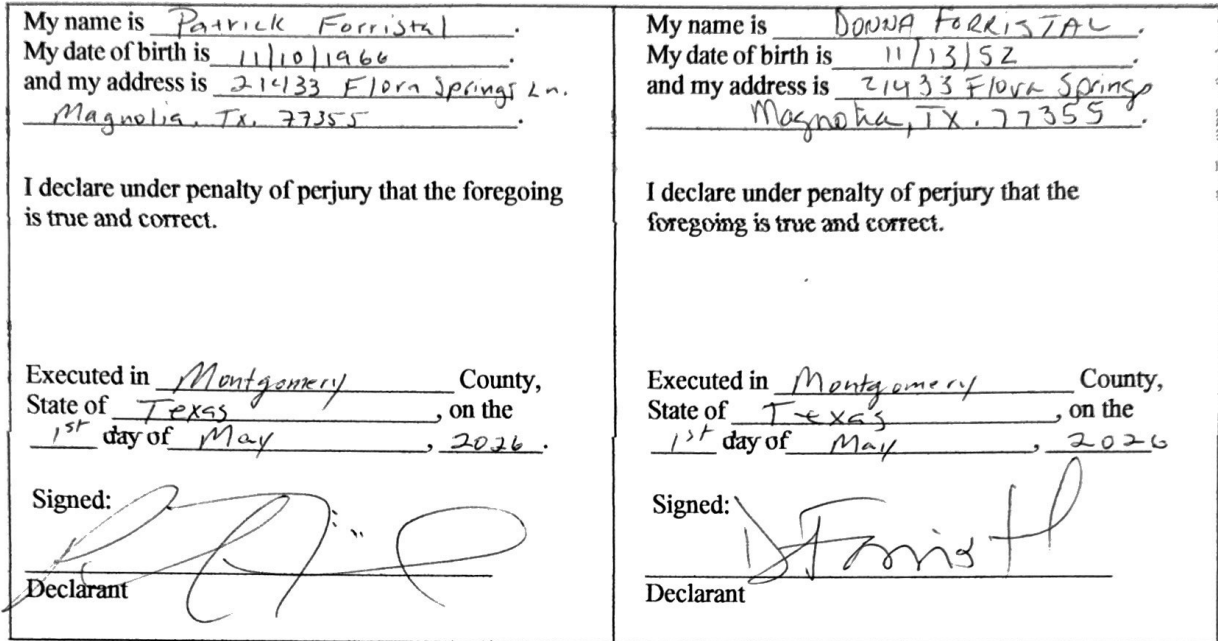 My name is Patrick Forristal.
My date of birth is 11/10/1966.
and my address is 21433 Flora Springs Ln.
Magnolia, Tx. 77355.
I declare under penalty of perjury that the foregoing
is true and correct.
Executed in Montgomery County,
State of Texas, on the
1st day of May, 2026.
Signed:
Declarant
My name is DONNA FORRISTAL.
My date of birth is 11/13/52.
and my address is 21433 Flora Springs
Magnolia, TX. 77355.
I declare under penalty of perjury that the
foregoing is true and correct.
Executed in Montgomery County,
State of Texas, on the
1st day of May, 2026
Signed: D Forristal
Declarant